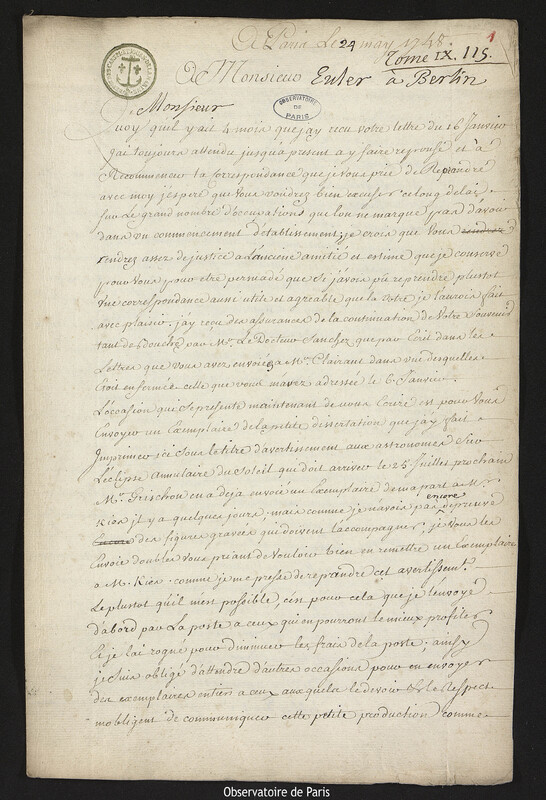 A Paris Le 24 may 1748.
1
Tome IX. 115
A Monsieur Euler à Berlin
OBSERVATOIRE DE PARIS
Monsieur
quoy quil y ait 4 mois que jay recu votre lettre du 16 Janvier
Jai toujours attendu jusqua present a y faire reponse et à
Recommencer la correspondance que je vous prie de Reprendre
avec moy jespere que vous voudrez bien excuser ce long delai
sur le grand nombre d'occupations que lon ne manque pas d'avoir
dans un commencement d'etablissement; je crois que vous
rendrez assez de justice a l'anciene amitié et estime que je conserve
pour vous pour etre persuadé que si j'avois pû reprendre plustost
une correspondance aussi utile et agréable que la votre je l'aurois fait
avec plaisir. jay recu des assurances de la continuation de votre souvenir
tant de bouche par Mr. Le Docteur Sanchez que par Ecrit dans les
Lettres que vous avez envoiées a Mr. Clairaut dans une desquelles
Etoit enfermée celle que vous m'avez adressée le 6 Janvier.
L'occasion qui se presente maintenant de vous Ecrire est pour vous
Envoyer un Exemplaire de la petite dissertation que j'ay fait
Imprimer ici sous le titre d'avertissement aux astronomes sur
L'eclipse Annulaire du Soleil qui doit arriver le 25 Juillet prochain
Mr. Grischou en a deja envoié un Exemplaire de ma part a Mr.
Kies il y a quelques jours, mais comme je n'avois pas encore d'epreuve
des figures gravées qui doivent l'accompagner, je vous les
Envoie doubles vous priant de vouloir bien en remettre un Exemplaire
a M. Kies. comme je me presse de reprandre cet avertissemt.
Le plustot qu'il m'est possible, c'est pour cela que je l'envoye
d'abord par La poste a ceux qui en pourront le mieux profiter
et je l'ai rogné pour diminuer les frais de la poste; ainsy
je suis obligé d'attendre d'autres occasions pour en envoyer
des exemplaires entiers a ceux auxquels le devoir et le Respect
m'obligent de communiquer cette petite production comme
Observatoire de Paris